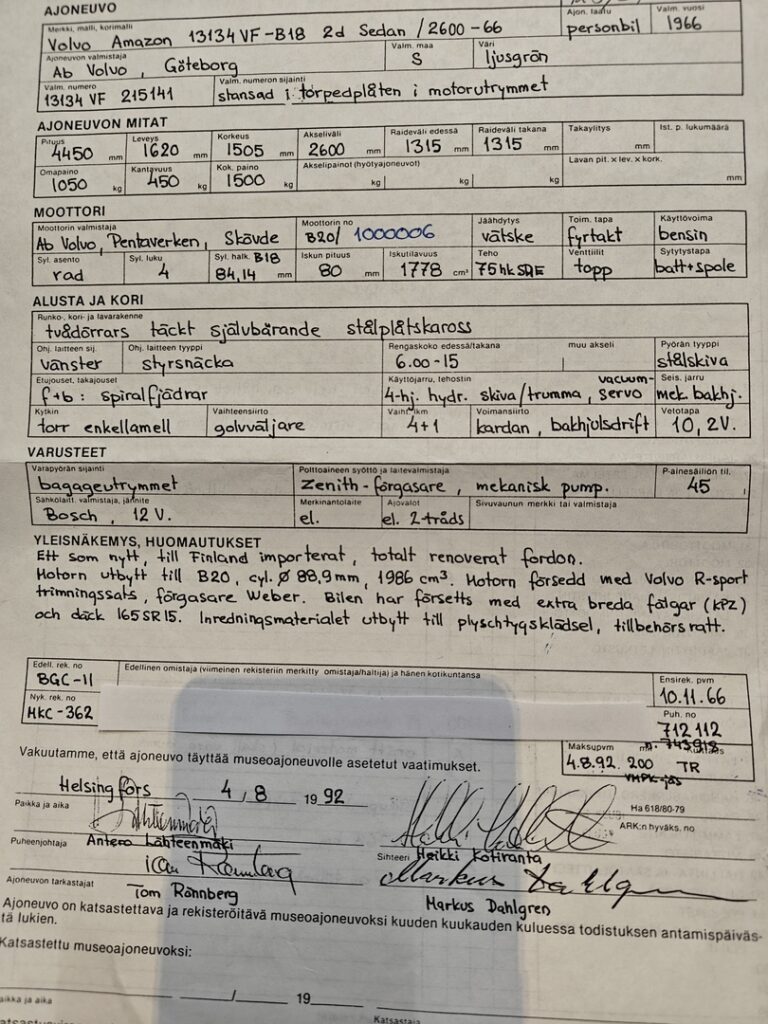 AJONEUVO
Merkki, malli, korimalli Ajon. laatu Valm. vuosi
Volvo Amazon 13134 VF-B18 2d Sedan /2600-66 personbil 1966
Ajoneuvon valmistaja Valm. maa Väri
Ab Volvo, Göteborg S ljusgrön
Valm. numero Valm. numeron sijainti
13134 VF 215141 stansad i torpedplåten i motorutrymmet
AJONEUVON MITAT
Pituus Leveys Korkeus Akseliväli Raideväli edessä Raideväli takana Takaylitys Ist. p. lukumäärä
4450 mm 1620 mm 1505 mm 2600 mm 1315 mm 1315 mm mm
Omapaino Kantavuus Kok. paino Akselipainot (hyötyajoneuvot) Lavan pit. x lev. x kork.
1050 kg 450 kg 1500 kg kg kg kg mm
MOOTTORI
Moottorin valmistaja Moottorin no Jäähdytys Toim. tapa Käyttövoima
Ab Volvo, Pentaverken, Skövde B20/ 1000006 vätske fyrtakt bensin
Syl. asento Syl. luku Syl. halk. B18 Iskun pituus Iskutilavuus Teho Venttiilit Sytytystapa
rad 4 84,14 mm 80 mm 1778 cm³ 75hk SAE topp batt+spole
ALUSTA JA KORI
Runko-, kori- ja lavarakenne
tvådörrars täckt självbärande stålplåtskaross
Ohj. laitteen sij. Ohj. laitteen tyyppi Rengaskoko edessä/takana muu akseli Pyörän tyyppi
vänster styrsnäcka 6.00-15 stålskiva
Etujouset, takajouset Käyttöjarru, tehostin vacuum- Seis. jarru
f+b: spiralfjädrar 4-hj. hydr. skiva/trumma, servo mek. bakhj.
Kytkin Vaihteensiirto Vaiht. lkm Voimansiirto Vetotapa
torr enkellamell golvväljare 4+1 kardan, bakhjulsdrift 10, 2V.
VARUSTEET
Varapyörän sijainti Polttoaineen syöttö ja laitevalmistaja P-ainesäiliön til.
bagageutrymmet Zenith-förgasare, mekanisk pump. 45
Sähkölaitt. valmistaja, jännite Merkinantolaite Ajovalot Sivuvaunun merkki tai valmistaja
Bosch, 12 V. el. el. 2-tråds
YLEISNÄKEMYS, HUOMAUTUKSET
Ett som nytt, till Finland importerat, totalt renoverat fordon.
Motorn utbytt till B20, cyl. Ø 88,9mm, 1986 cm³. Motorn försedd med Volvo R-sport
trimningssats, förgasare Weber. Bilen har försetts med extra breda fälgar (KPZ)
och däck 165SR15. Inredningsmaterialet utbytt till plyschtygsklädsel, tillbehörsratt.
Edell. rek. no Edellinen omistaja (viimeinen rekisteriin merkitty omistaja/haltija) ja hänen kotikuntansa Ensirek. pvm
BGC-11 10.11.66
Nyk. rek. no Puh. no
HKC-362 712 112
Maksupvm
4.8.92 200 TR
Vakuutamme, että ajoneuvo täyttää museoajoneuvolle asetetut vaatimukset.
Helsingfors 4/8 1992
Paikka ja aika Ha 618/80-79
ARK:n hyväks. no
Puheenjohtaja Antero Lähteenmäki Sihteeri Heikki Kotiranta
Ajoneuvon tarkastajat Tom Rännberg Markus Dahlgren
Ajoneuvo on katsastettava ja rekisteröitävä museoajoneuvoksi kuuden kuukauden kuluessa todistuksen antamispäiväs-
tä lukien.
Katsastettu museoajoneuvoksi:
/ 19
aikka ja aika
Katsastaja